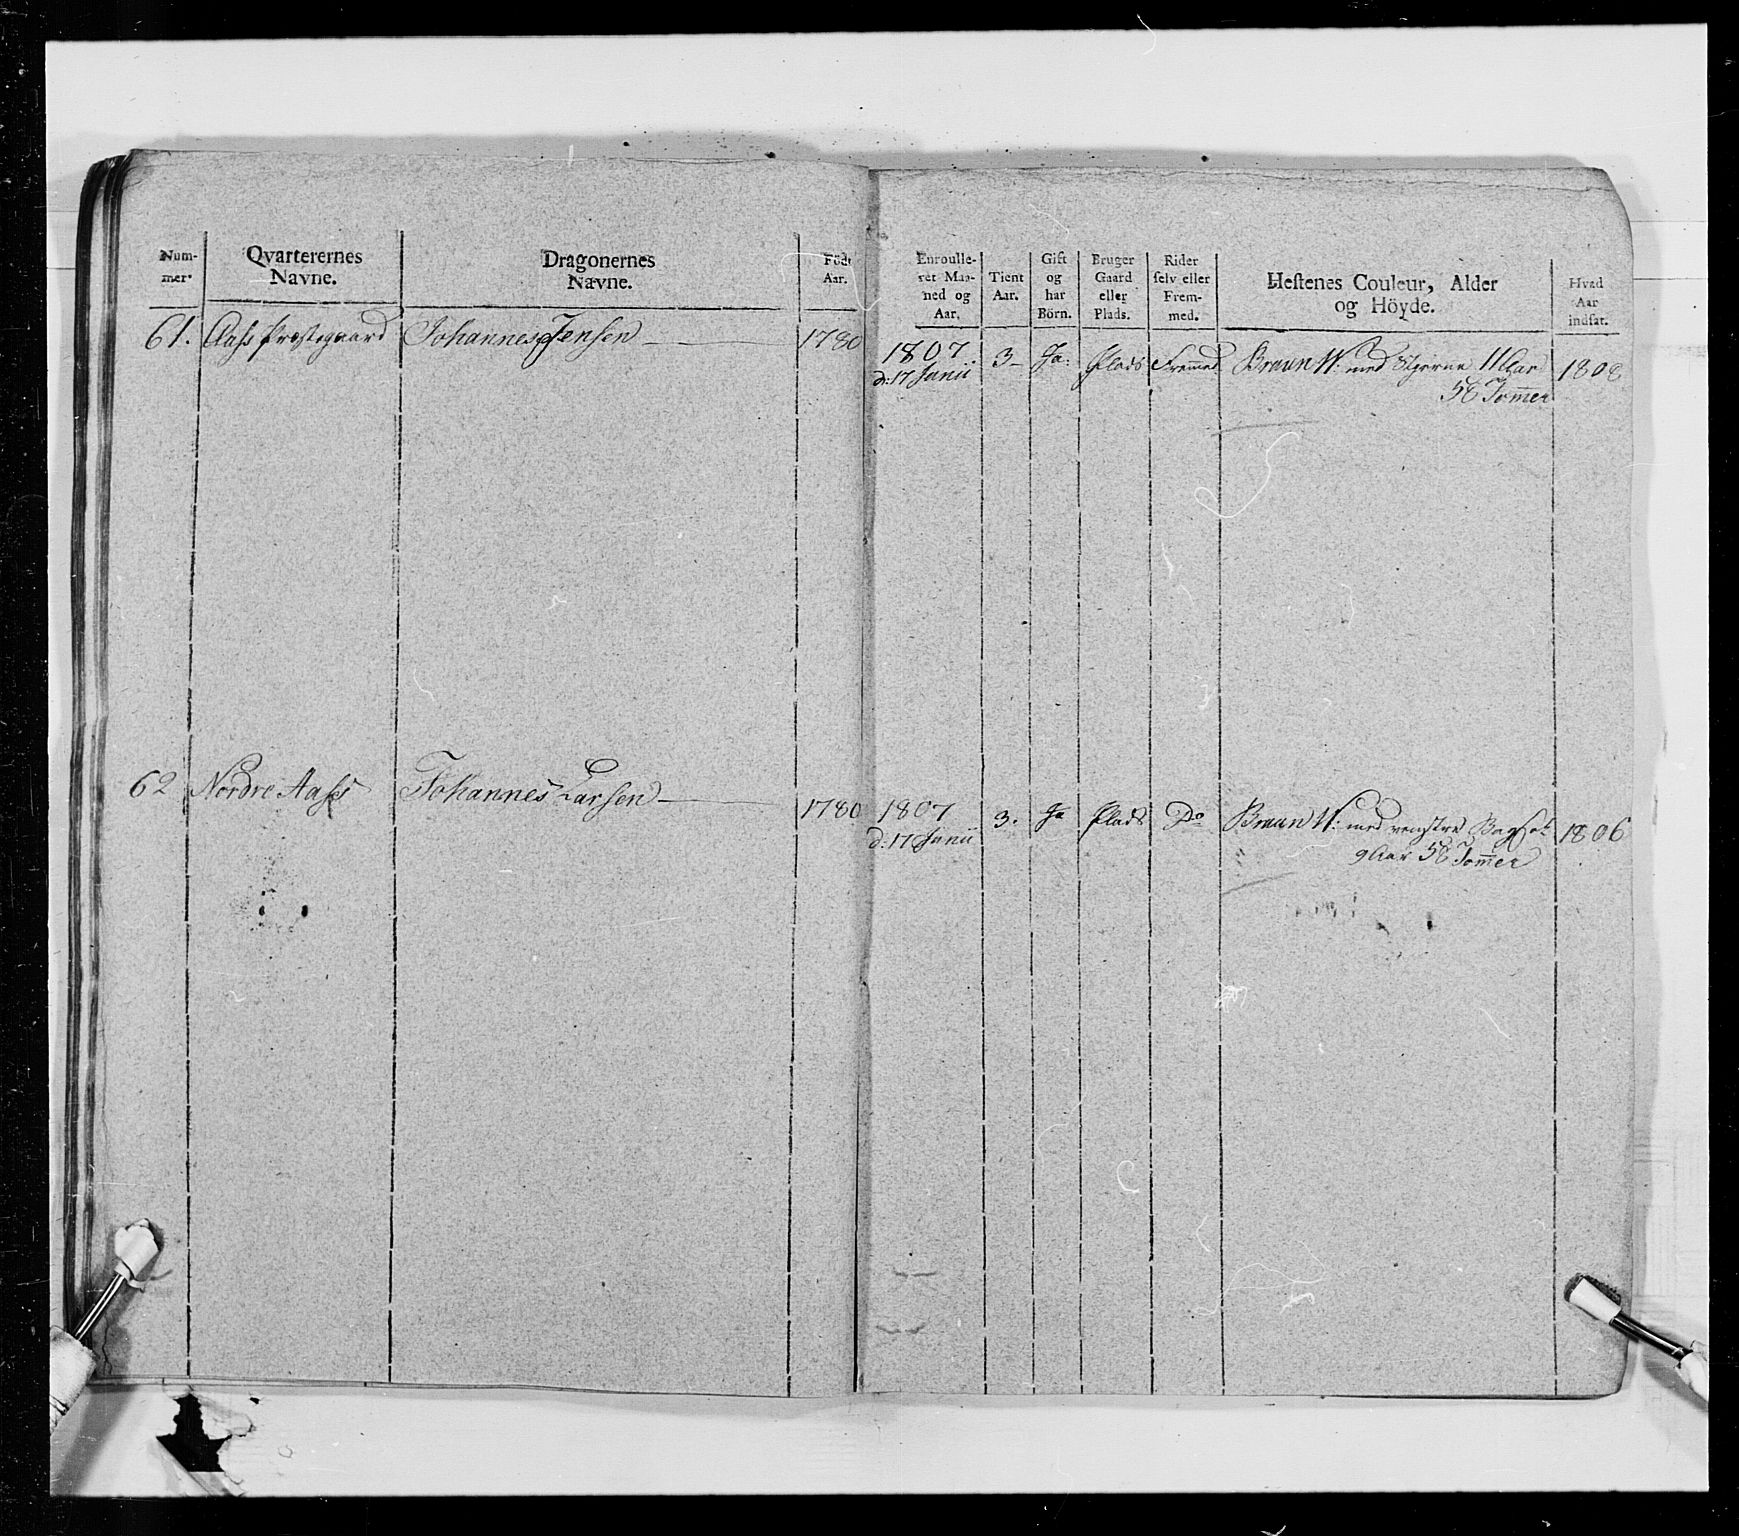 Num-
mer.
Qvarterernes
Navne.
Dragonernes
Navne.
Född
Aar.
Enroulle-
ret Maa-
ned og
Aar.
Tient
Aar.
Gift
og
har
Börn.
Bruger
Gaard
eller
Plads.
Rider
selv eller
Frem-
med.
Hestenes Couleur, Alder
og Höyde.
Hvad
Aar
indsat.
61. Aass Prestegaard Johannes Jensen 1780
1807 d: 17 Junii 3 Ja: Plads Fremmed Bruun W: med Stjerne 11 Aar 1808
58 Tom̄er
62 Nordre Aass Johannes Larsen 1780
1807 d: 17 Junii 3. Ja Plads Do Bruun W: med venstre Bagfod 1806
9 Aar 58 Tom̄er